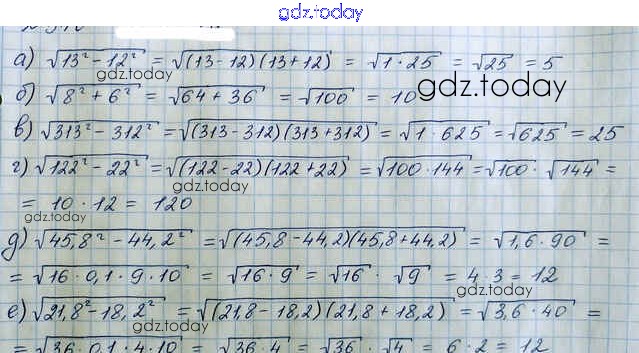 gdz.today
а) √13² − 12² = √(13 − 12)(13 + 12) = √1 · 25 = √25 = 5
gdz.today
б) √8² + 6² = √64 + 36 = √100 = 10
gdz.today
в) √313² − 312² = √(313 − 312)(313 + 312) = √1 · 625 = √625 = 25
г) √122² − 22² = √(122 − 22)(122 + 22) = √100 · 144 = √100 · √144 =
gdz.today
= 10 · 12 = 120
gdz.today
д) √45,8² − 44,2² = √(45,8 − 44,2)(45,8 + 44,2) = √1,6 · 90 =
= √16 · 0,1 · 9 · 10 = √16 · 9 = √16 · √9 = 4 · 3 = 12
gdz.today
е) √21,8² − 18,2² = √(21,8 − 18,2)(21,8 + 18,2) = √3,6 · 40 =
gdz.today
= √36 · 0,1 · 4 · 10 = √36 · 4 = √36 · √4 = 6 · 2 = 12
gdz.today